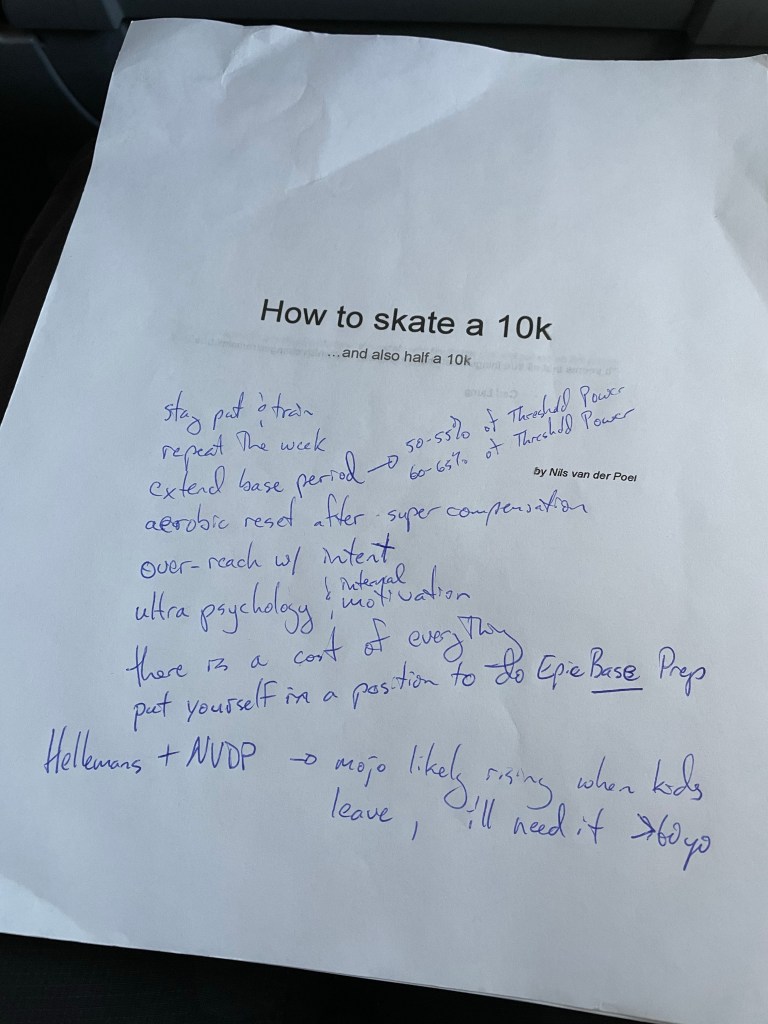 How to skate a 10k
...and also half a 10k
stay put & train
repeat the week
extend base period → 50-55% of Threshold Power
60-65% of Threshold Power
by Nils van der Poel
aerobic reset after super compensation
over-reach w/ intent
ultra psychology & internal motivation
there is a cost of everything
put yourself in a position to do Epic Base Prep
Hellemans + NVDP → mojo likely rising when kids
leave, i'll need it >60yo